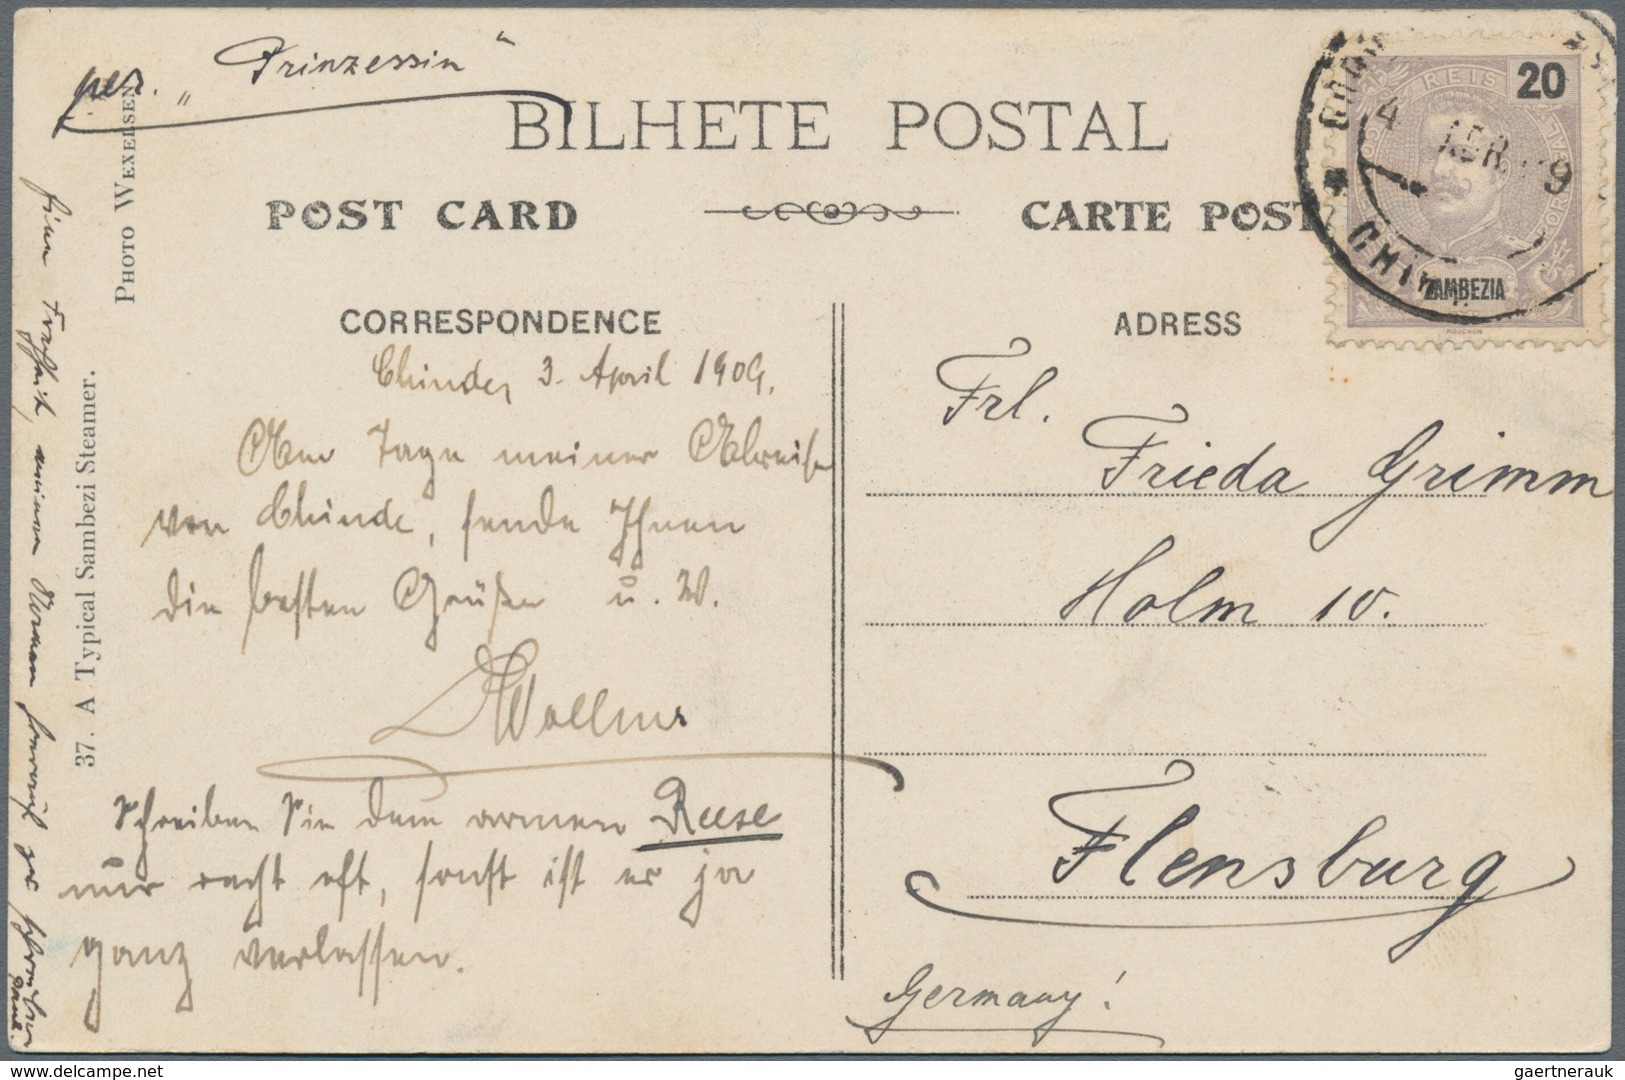 per. „Prinzessin“
BILHETE POSTAL
POST CARD
CARTE POST
CORRESPONDENCE
ADRESS
REIS
20
4 ABR 09
CHIN
ZAMBEZIA
Chinde, 3. April 1909.
Am Tage meiner Abreise
von Chinde, sende Ihnen
die besten Grüße u. W.
Schreiben Sie dem armen Reese
nur recht oft, sonst ist er ja
ganz verlassen.
Frl.
Frieda Grimm
Holm 10.
Flensburg
Germany!
PHOTO WEXELSEN
37. A Typical Sambezi Steamer.
meinen Namen
zu
www.delcampe.net
gaertnerauk